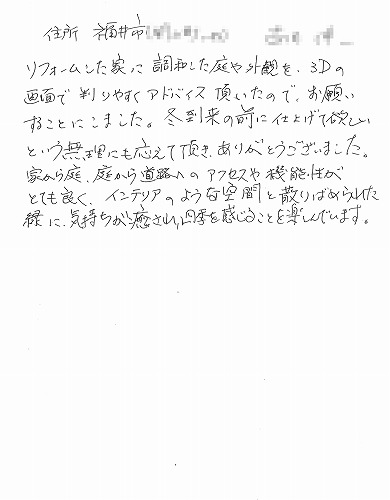 住所 福井市
リフォームした家に調和した庭や外観を、3Dの
画面で判りやすくアドバイス頂いたので、お願い
することにしました。冬到来の前に仕上げて欲しい
という無理にも応えて頂き、ありがとうございました。
家から庭、庭から道路へのアクセスや機能性が
とても良く、インテリアのような空間と散りばめられた
緑に、気持ちが癒され、四季を感じることを楽しんでいます。